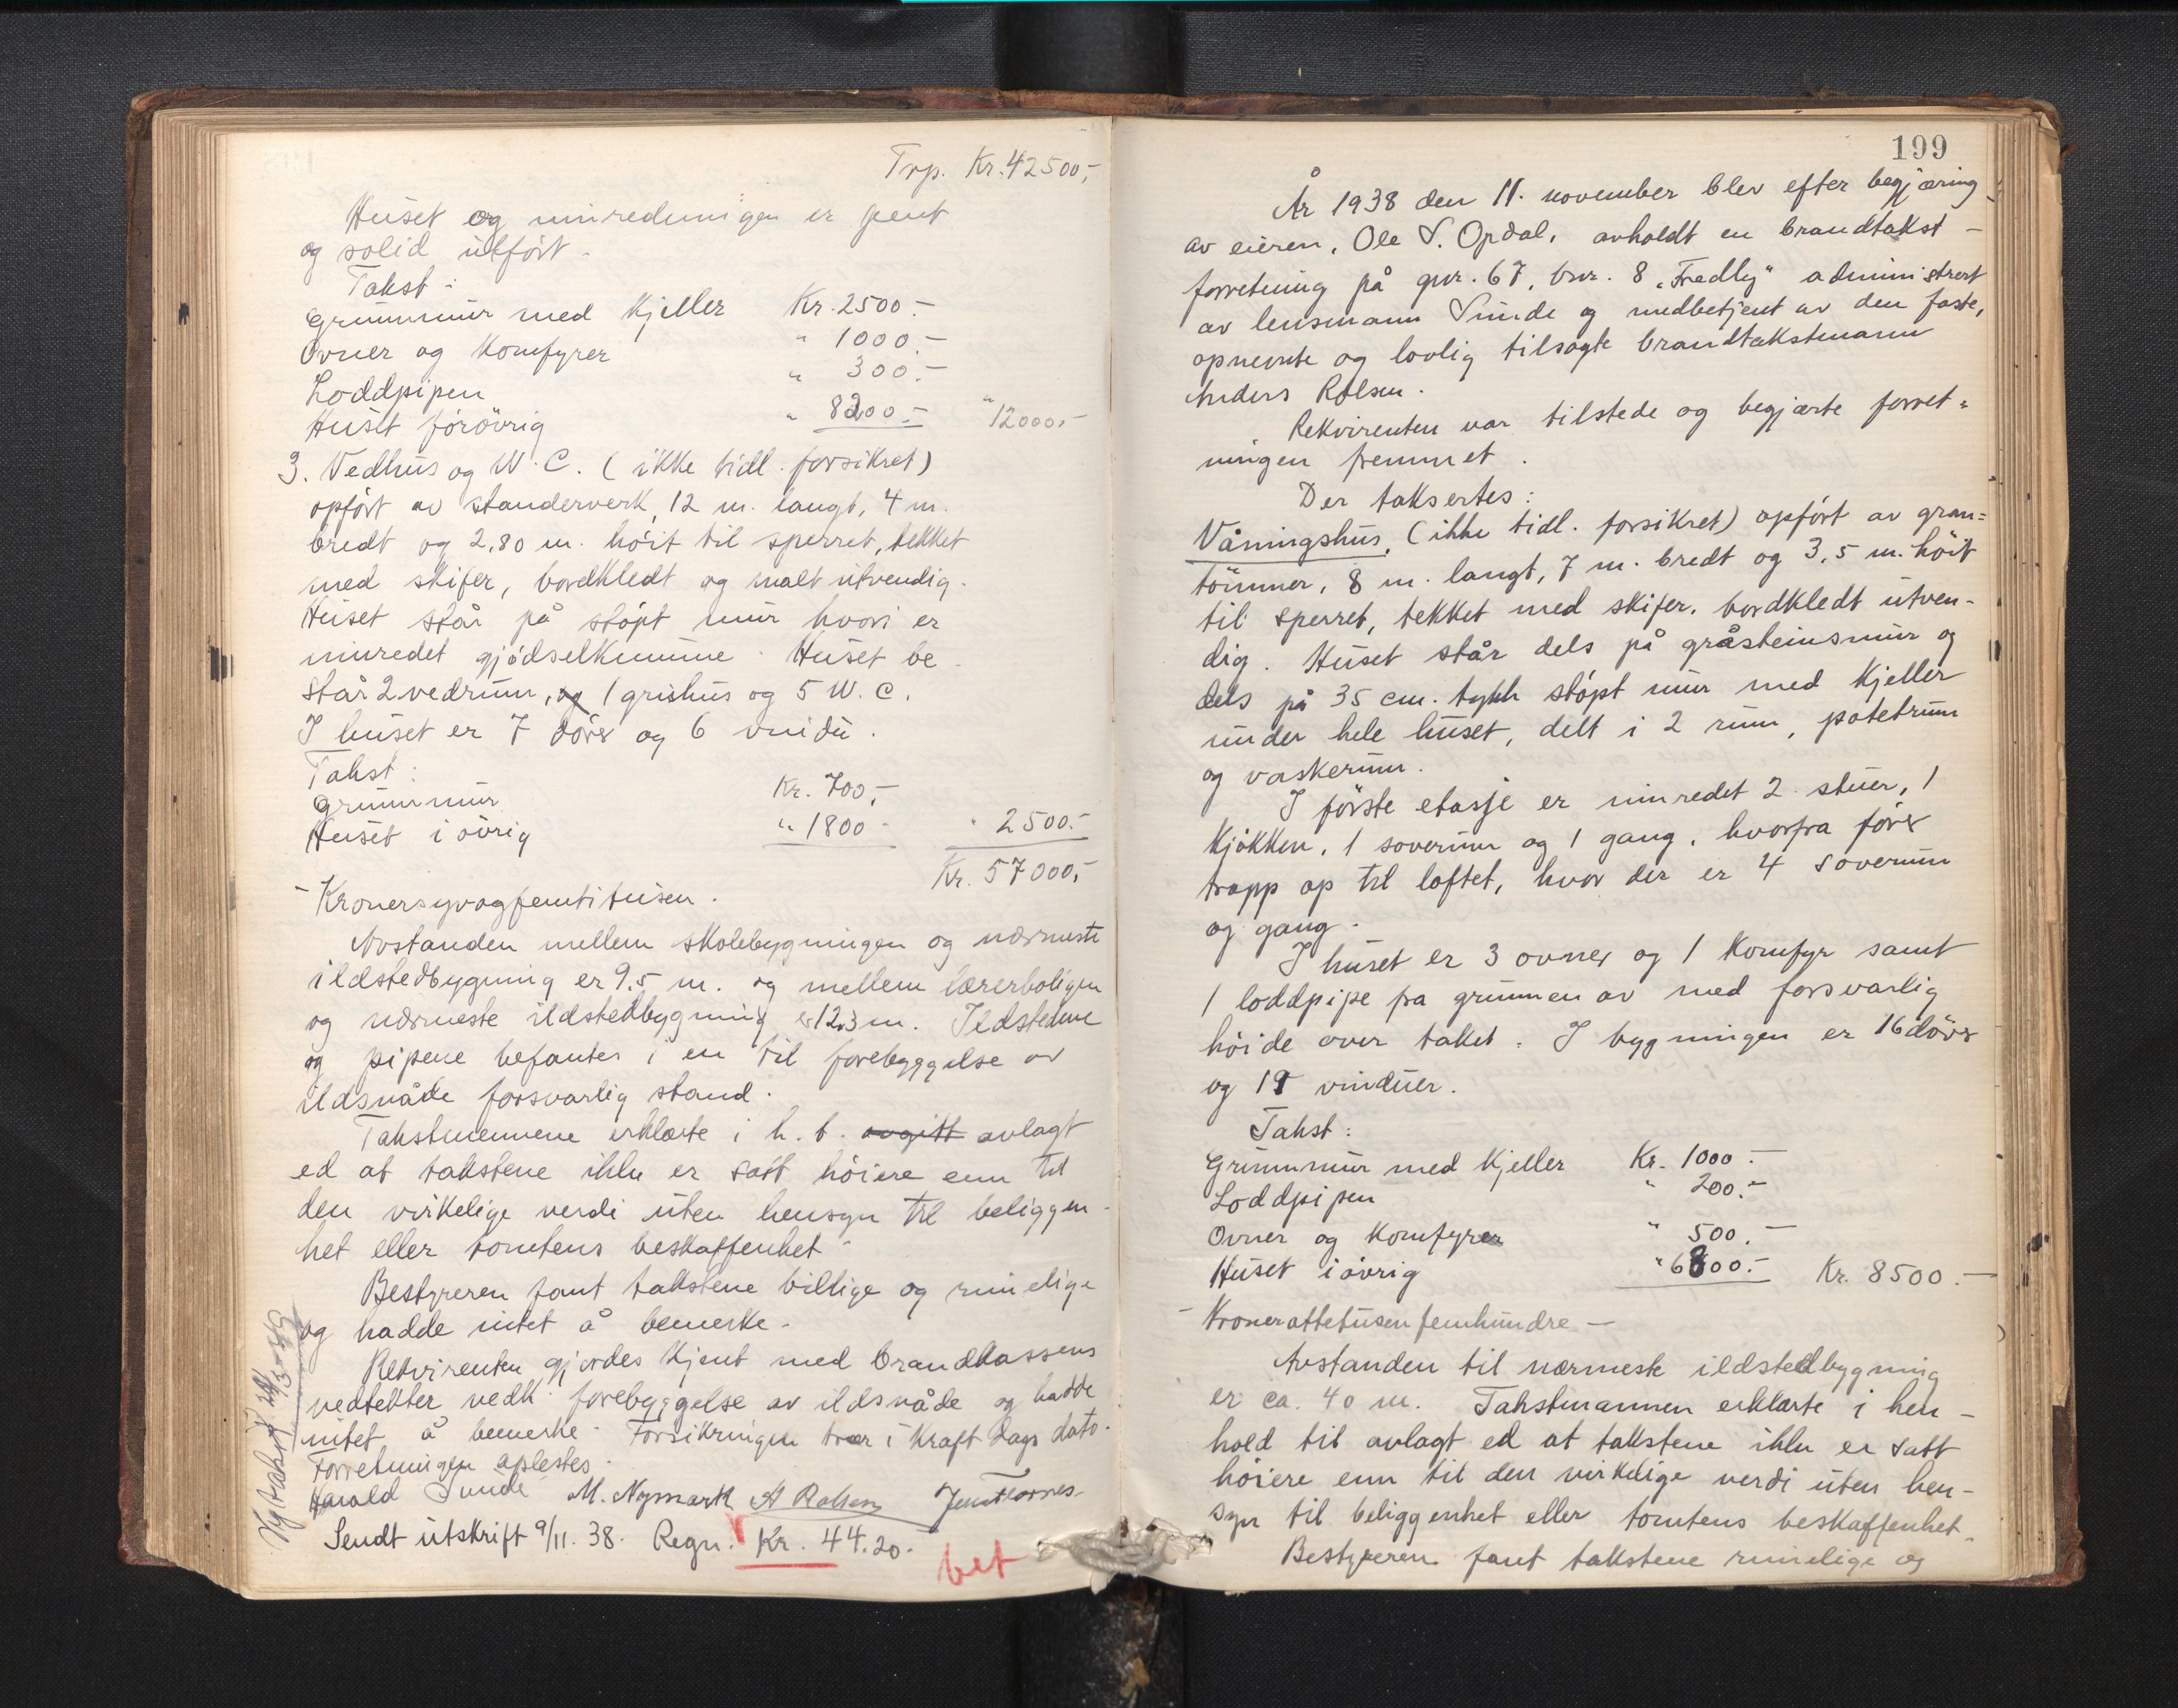 Trp. Kr. 42500,-
Huset og innredningen er pent
og solid utført.
Takst:
Grunnmur med kjeller Kr. 2500.-
Ovner og komfyrer " 1000.-
Loddpipen " 300.-
Huset forøvrig " 8200.- " 12000.-
3. Vedhus og W.C. (ikke tidl. forsikret)
opført av standerverk, 12 m. langt, 4 m.
bredt og 2,80 m. høit til sperret, tekket
med skifer, bordkledt og malt utvendig.
Huset står på støpt mur hvori er
innredet gjødselkumme. Huset be-
står 2 vedrum, og 1 grishus og 5 W.C.
I huset er 7 dører og 6 vindu.
Takst:
Grunnmur Kr. 700,-
Huset i øvrig " 1800.- " 2500.-
Kr. 57000,-
- Kronersyvogfemtitusen.
Avstanden mellem skolebygningen og nærmeste
ildstedbygning er 9,5 m. og mellem lærerboligen
og nærmeste ildstedbygning er 12,3 m. Ildstedene
og pipene befantes i en til forebyggelse av
ildsvåde forsvarlig stand.
Takstmennene erklærte i h. t. avgitt avlagt
ed at takstene ikke er satt høiere enn til
den virkelige verdi uten hensyn til beliggen-
het eller tomtens beskaffenhet.
Bestyreren fant takstene billige og rimelige
og hadde intet å bemerke.
Rekvirenten gjordes kjent med brandkassens
vedtekter vedk. forebyggelse av ildsvåde og hadde
intet å bemerke. Forsikringen trær i kraft dags dato.
Forretningen oplestes.
Harald Sunde M. Nymark A Rolsen
Sendt utskrift 9/11.38. Regn. Kr. 44.20.
bet
Ny takst 24/3-
199
År 1938 den 11. november blev efter begjæring
av eieren, Ole S. Opdal, avholdt en brandtakst-
forretning på gnr. 67, bnr. 8 "Fredly" administrert
av lensmann Sunde og medbetjent av den faste,
opnevnte og lovlig tilsagte brandtakstmann
Anders Rolsen.
Rekvirenten var tilstede og begjærte forret=
ningen fremmet.
Der taksertes:
Våningshus, (ikke tidl. forsikret) opført av gran=
tømmer, 8 m. langt, 7 m. bredt og 3,5 m. høit
til sperret, tekket med skifer, bordkledt utven-
dig. Huset står dels på gråsteinsmur og
dels på 35 cm. tykk støpt mur med kjeller
under hele huset, delt i 2 rum, potetrum
og vaskerum.
I første etasje er innredet 2 stuer, 1
kjøkken, 1 soverum og 1 gang, hvorfra fører
trapp op til loftet, hvor der er 4 soverum
og gang.
I huset er 3 ovner og 1 komfyr samt
1 loddpipe fra grunnen av med forsvarlig
høide over taket. I bygningen er 16 dører
og 19 vinduer.
Takst:
Grunnmur med kjeller Kr. 1000.-
Loddpipen " 200.-
Ovner og komfyrer " 500.-
Huset i øvrig " 6800.- Kr. 8500.-
- Kroneråttetusenfemhundre -
Avstanden til nærmeste ildstedbygning
er ca. 40 m. Takstmannen erklærte i hen-
hold til avlagt ed at takstene ikke er satt
høiere enn til den virkelige verdi uten hen-
syn til beliggenhet eller tomtens beskaffenhet.
Bestyreren fant takstene rimelige og